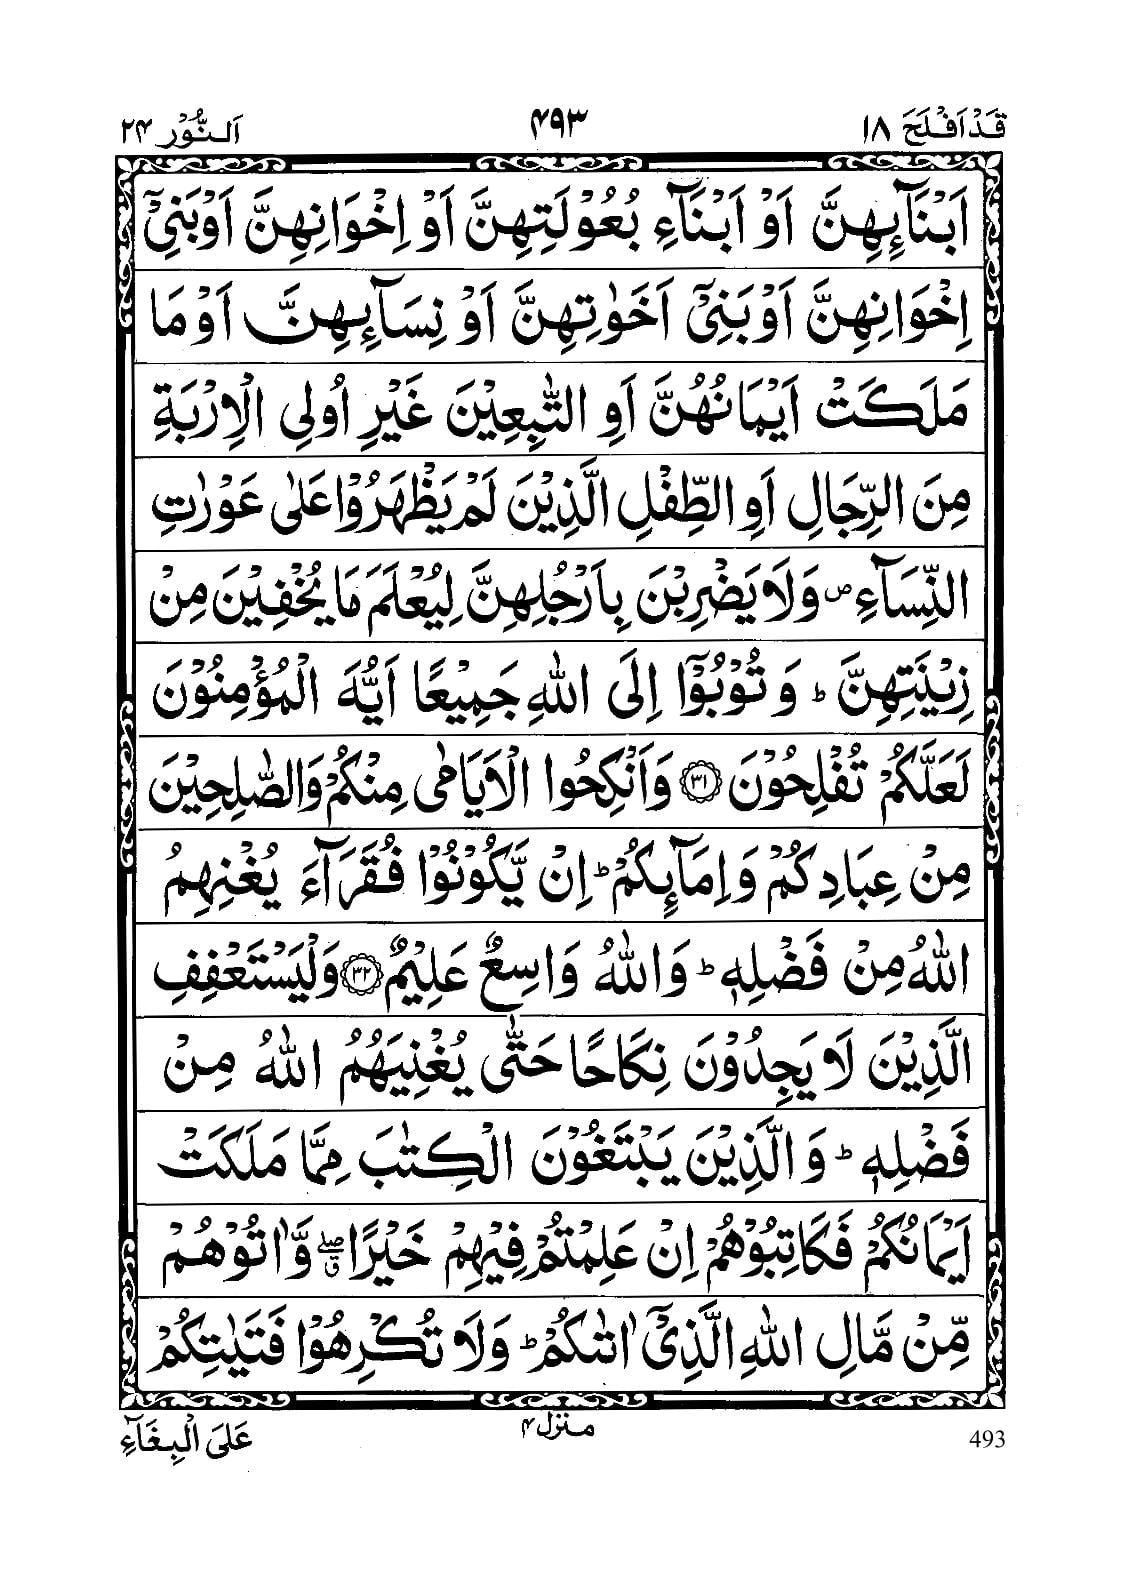 قَدْ اَفْلَحَ ١٨
۴۹۳
اَلنُّوْر ٢۴
اَبْنَآئِهِنَّ اَوْ اَبْنَآءِ بُعُوْلَتِهِنَّ اَوْ اِخْوَانِهِنَّ اَوْ بَنِیْۤ
اِخْوَانِهِنَّ اَوْ بَنِیْۤ اَخَوٰتِهِنَّ اَوْ نِسَآئِهِنَّ اَوْ مَا
مَلَكَتْ اَیْمَانُهُنَّ اَوِ التّٰبِعِیْنَ غَیْرِ اُولِی الْاِرْبَةِ
مِنَ الرِّجَالِ اَوِ الطِّفْلِ الَّذِیْنَ لَمْ یَظْهَرُوْا عَلٰی عَوْرٰتِ
النِّسَآءِ ص وَلَا یَضْرِبْنَ بِاَرْجُلِهِنَّ لِیُعْلَمَ مَا یُخْفِیْنَ مِنْ
زِیْنَتِهِنَّ ط وَتُوْبُوْۤا اِلَی اللّٰهِ جَمِیْعًا اَیُّهَ الْمُؤْمِنُوْنَ
لَعَلَّكُمْ تُفْلِحُوْنَ ٣١ وَاَنْكِحُوا الْاَیَامٰی مِنْكُمْ وَالصّٰلِحِیْنَ
مِنْ عِبَادِكُمْ وَاِمَآئِكُمْ ط اِنْ یَّكُوْنُوْا فُقَرَآءَ یُغْنِهِمُ
اللّٰهُ مِنْ فَضْلِهٖ ط وَاللّٰهُ وَاسِعٌ عَلِیْمٌ ٣٢ وَلْیَسْتَعْفِفِ
الَّذِیْنَ لَا یَجِدُوْنَ نِكَاحًا حَتّٰی یُغْنِیَهُمُ اللّٰهُ مِنْ
فَضْلِهٖ ط وَالَّذِیْنَ یَبْتَغُوْنَ الْكِتٰبَ مِمَّا مَلَكَتْ
اَیْمَانُكُمْ فَكَاتِبُوْهُمْ اِنْ عَلِمْتُمْ فِیْهِمْ خَیْرًا صلے ق وَّاٰتُوْهُمْ
مِّنْ مَّالِ اللّٰهِ الَّذِیْۤ اٰتٰىكُمْ ط وَلَا تُكْرِهُوْا فَتَیٰتِكُمْ
493
منزل ۴
عَلَی الْبِغَآءِ